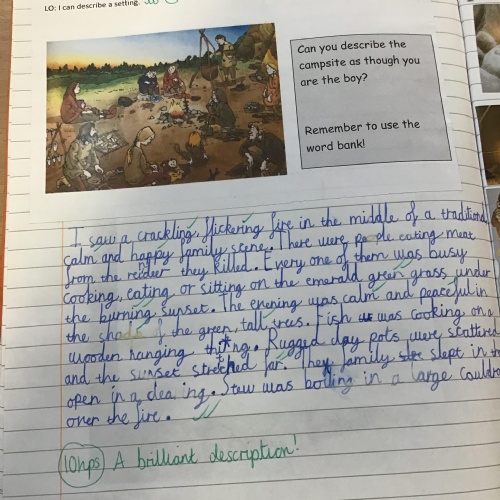 LO: I can describe a setting.
Can you describe the
campsite as though you
are the boy?
Remember to use the
word bank!
I saw a crackling, flickering fire in the middle of a traditional,
calm and happy family scene. There were people eating meat
from the they killed. Every one of them was busy
cooking, eating or sitting on the emerald green grass under
the burning sunset. The evening was calm and peaceful in
the of the green, tall trees. Fish was cooking on a
wooden hanging thing. Rugged clay pots were scattered
and the sunset stretched far. They family slept in the
open in a clearing. Stew was boiling in a large cauldron
over the fire.
10hps A brilliant description!